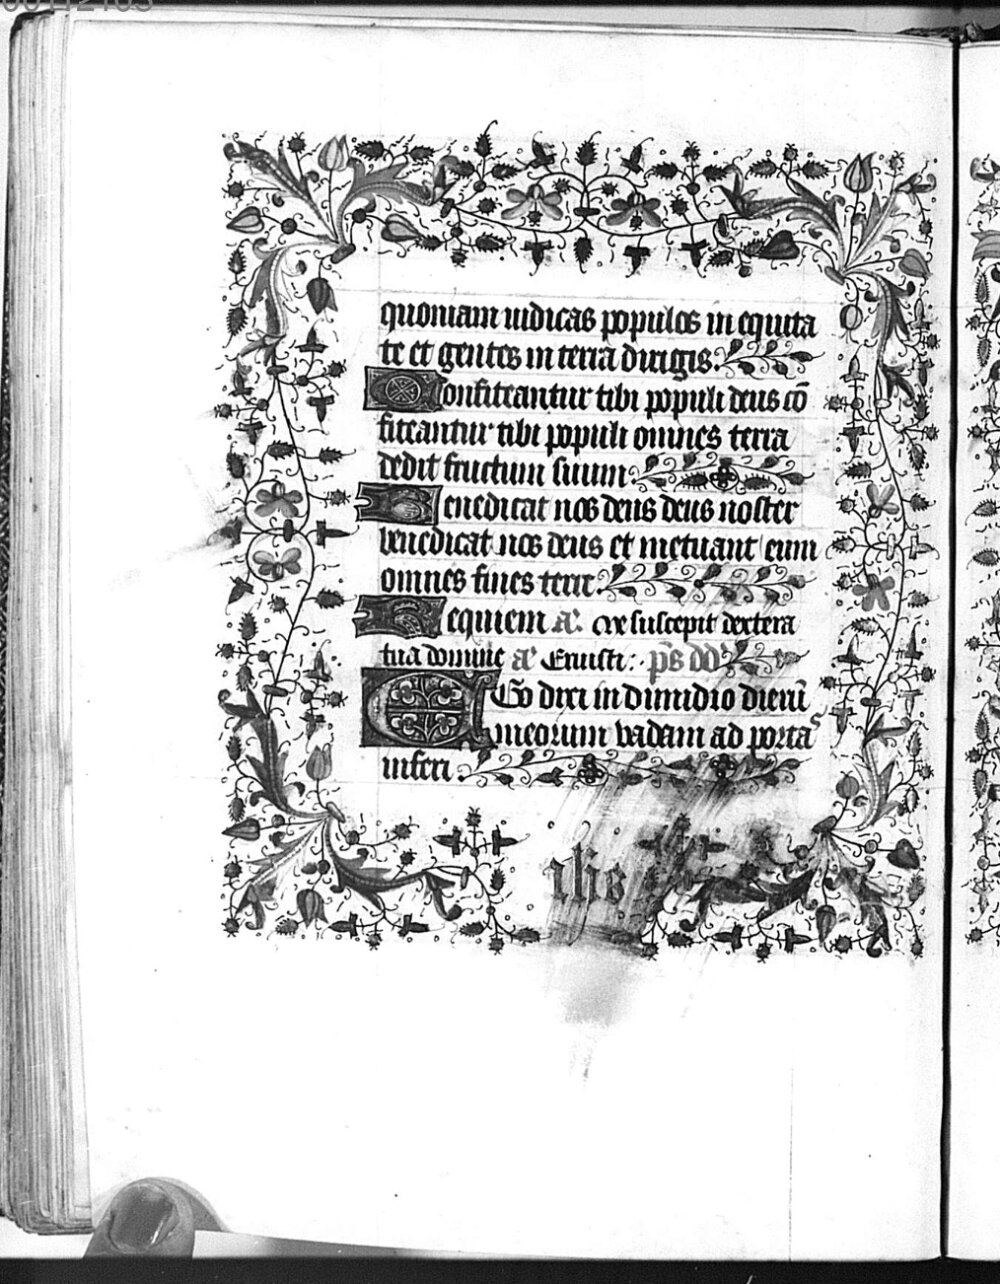 00112103
quoniam iudicas populos in equita
te et gentes in terra dirigis.
Confiteantur tibi populi deus cō
fiteantur tibi populi omnes terra
dedit fructum suum:
Benedicat nos deus deus noster
benedicat nos deus et metuant eum
omnes fines terre.
Requiem a. Me suscepit dextera
tua domine a Eruisti: ps dd
EGo dixi in dimidio dierū
meorum vadam ad portas
inferi.
ihs